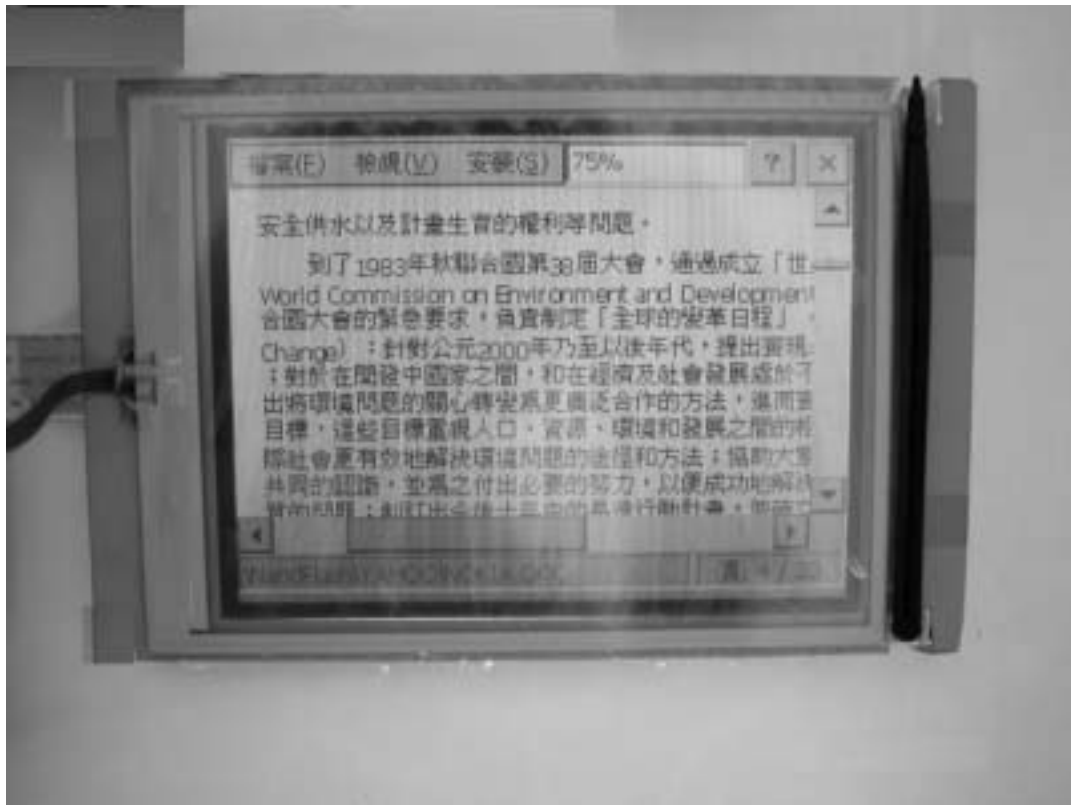 檔案(F) 檢視(V) 安裝(S) 75% ? ×
安全供水以及計畫生育的權利等問題。
到了1983年秋聯合國第38屆大會，通過成立「世
World Commission on Environment and Development
合國大會的緊急要求，負責制定「全球的變革日程」
Change）；針對公元2000年乃至以後年代，提出實現
；對於在開發中國家之間，和在經濟及社會發展處於不
出將環境問題的關心轉變爲更廣泛合作的方法，進而
目標，這些目標重視人口、資源、環境和發展之間的相
際社會更有效地解決環境問題的途徑和方法；協助大
共同的認識，並爲之付出必要的努力，以便成功地解決
的問題；制訂出今後十年內的